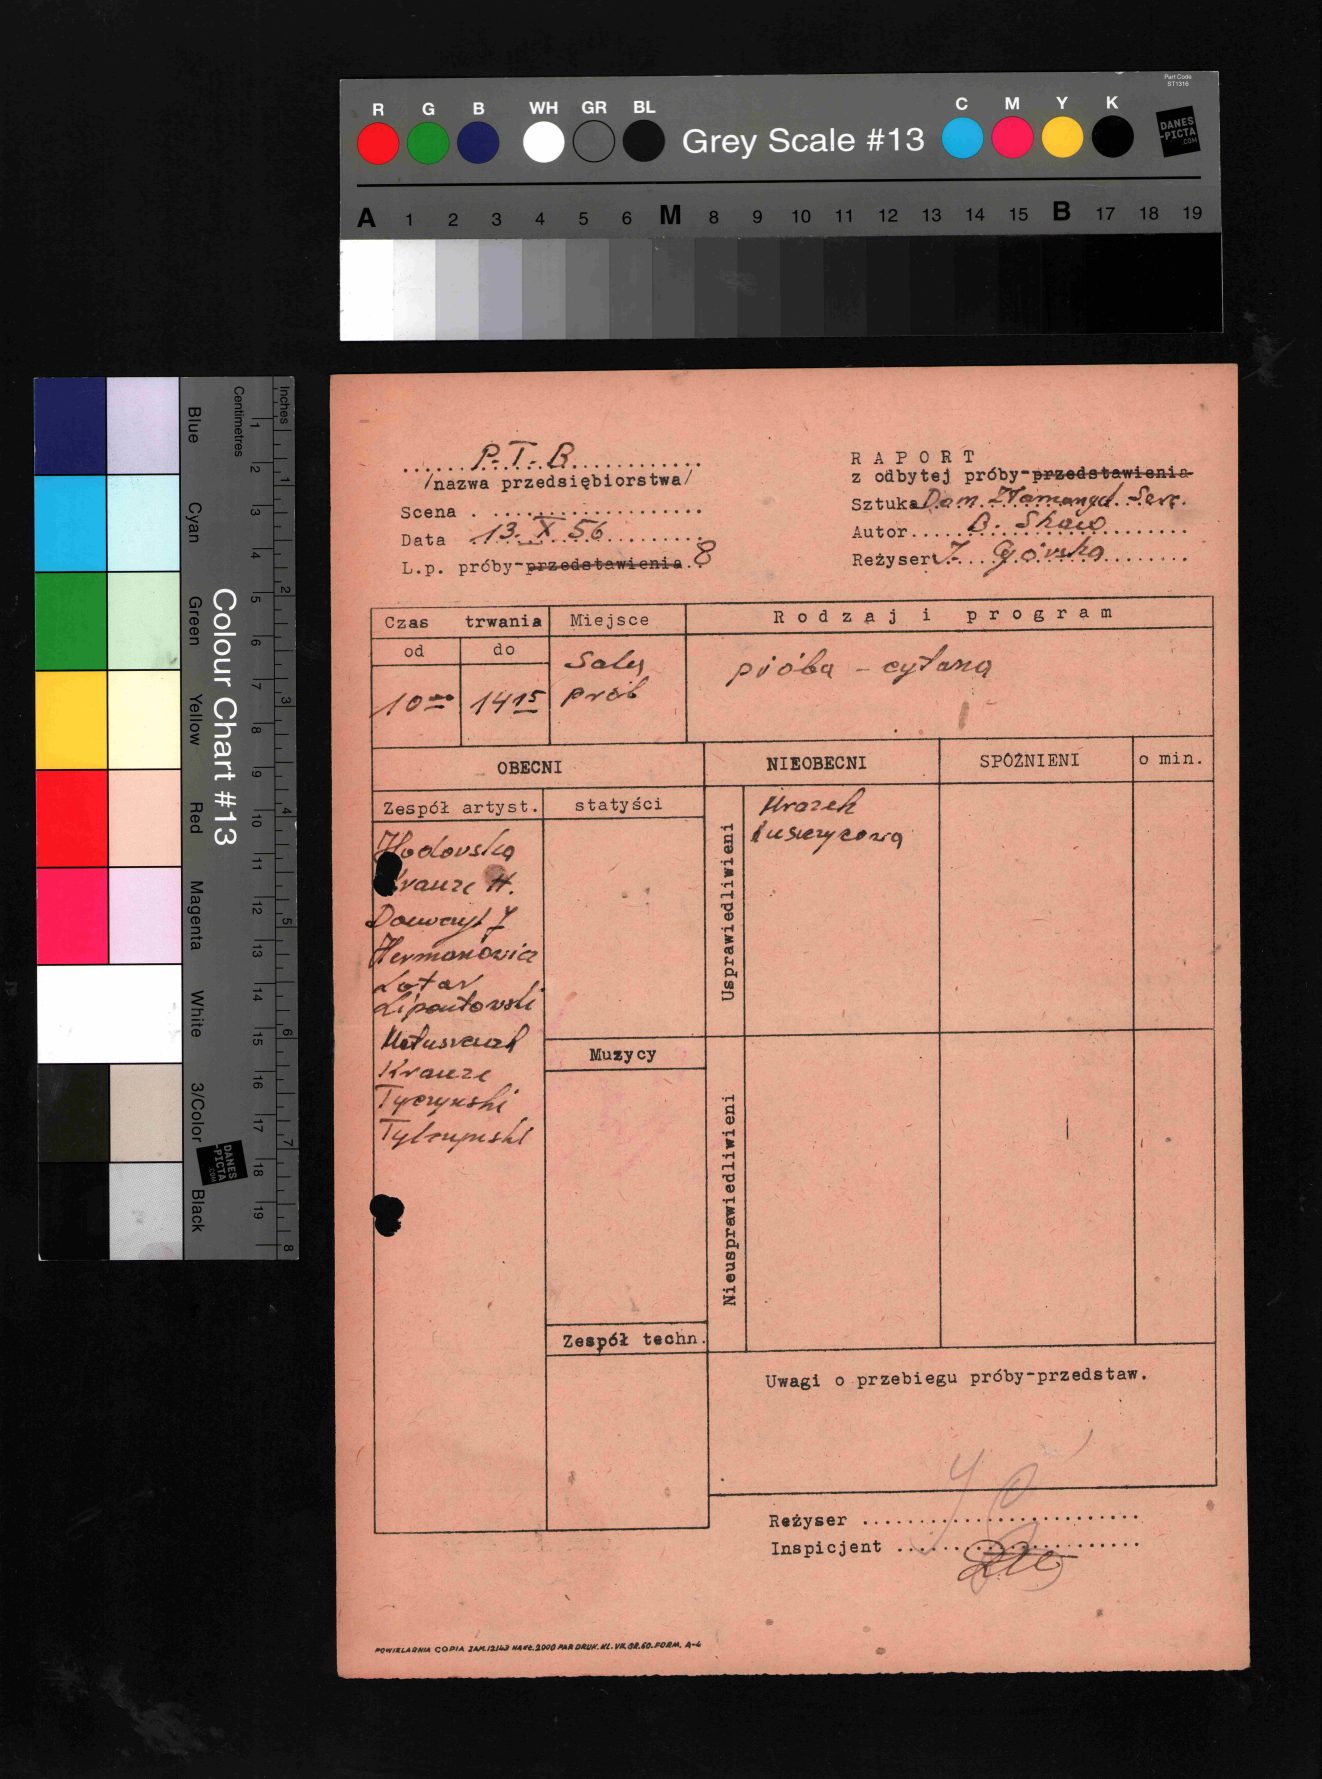 Part Code
ST1316
R G B WH GR BL Grey Scale #13 C M Y K
DANES
-PICTA
.COM
A 1 2 3 4 5 6 M 8 9 10 11 12 13 14 15 B 17 18 19
Colour Chart #13
Blue Cyan Green Yellow Red Magenta White 3/Color Black
Centimetres
1 2 3 4 5 6 7 8 9 10 11 12 13 14 15 16 17 18 19
Inches
1 2 3 4 5 6 7 8
DANES
-PICTA
.COM
P.T.B.
/nazwa przedsiębiorstwa/
Scena
Data 13. X 56
L.p. próby-przedstawienia 8
RAPORT
z odbytej próby-przedstawienia
Sztuka Dom Złamanych Serc
Autor B. Shaw
Reżyser J. Górska
Czas trwania
od do
10 00 14 15
Miejsce
Sala
prób
Rodzaj i program
próba - cytana
OBECNI
NIEOBECNI
SPÓŹNIENI
o min.
Zespół artyst.
statyści
Hodovska
Krauze H.
Hermanowicz
Lotar
Krauze
Tyczynski
Tylczynski
Muzycy
Zespół techn.
Usprawiedliwieni
Mrozek
Nieusprawiedliwieni
Uwagi o przebiegu próby-przedstaw.
Reżyser
Inspicjent
POWIELARNIA COPIA ZAM.12143 NAKŁ.2000 PAR DRUK. KL. VII. GR.60. FORM. A-4